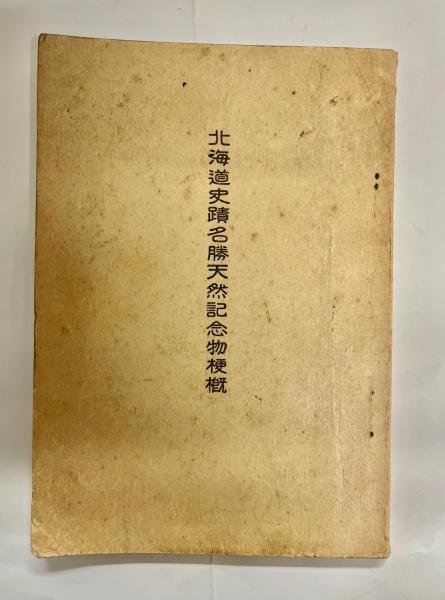 北海道史蹟名勝天然記念物梗概